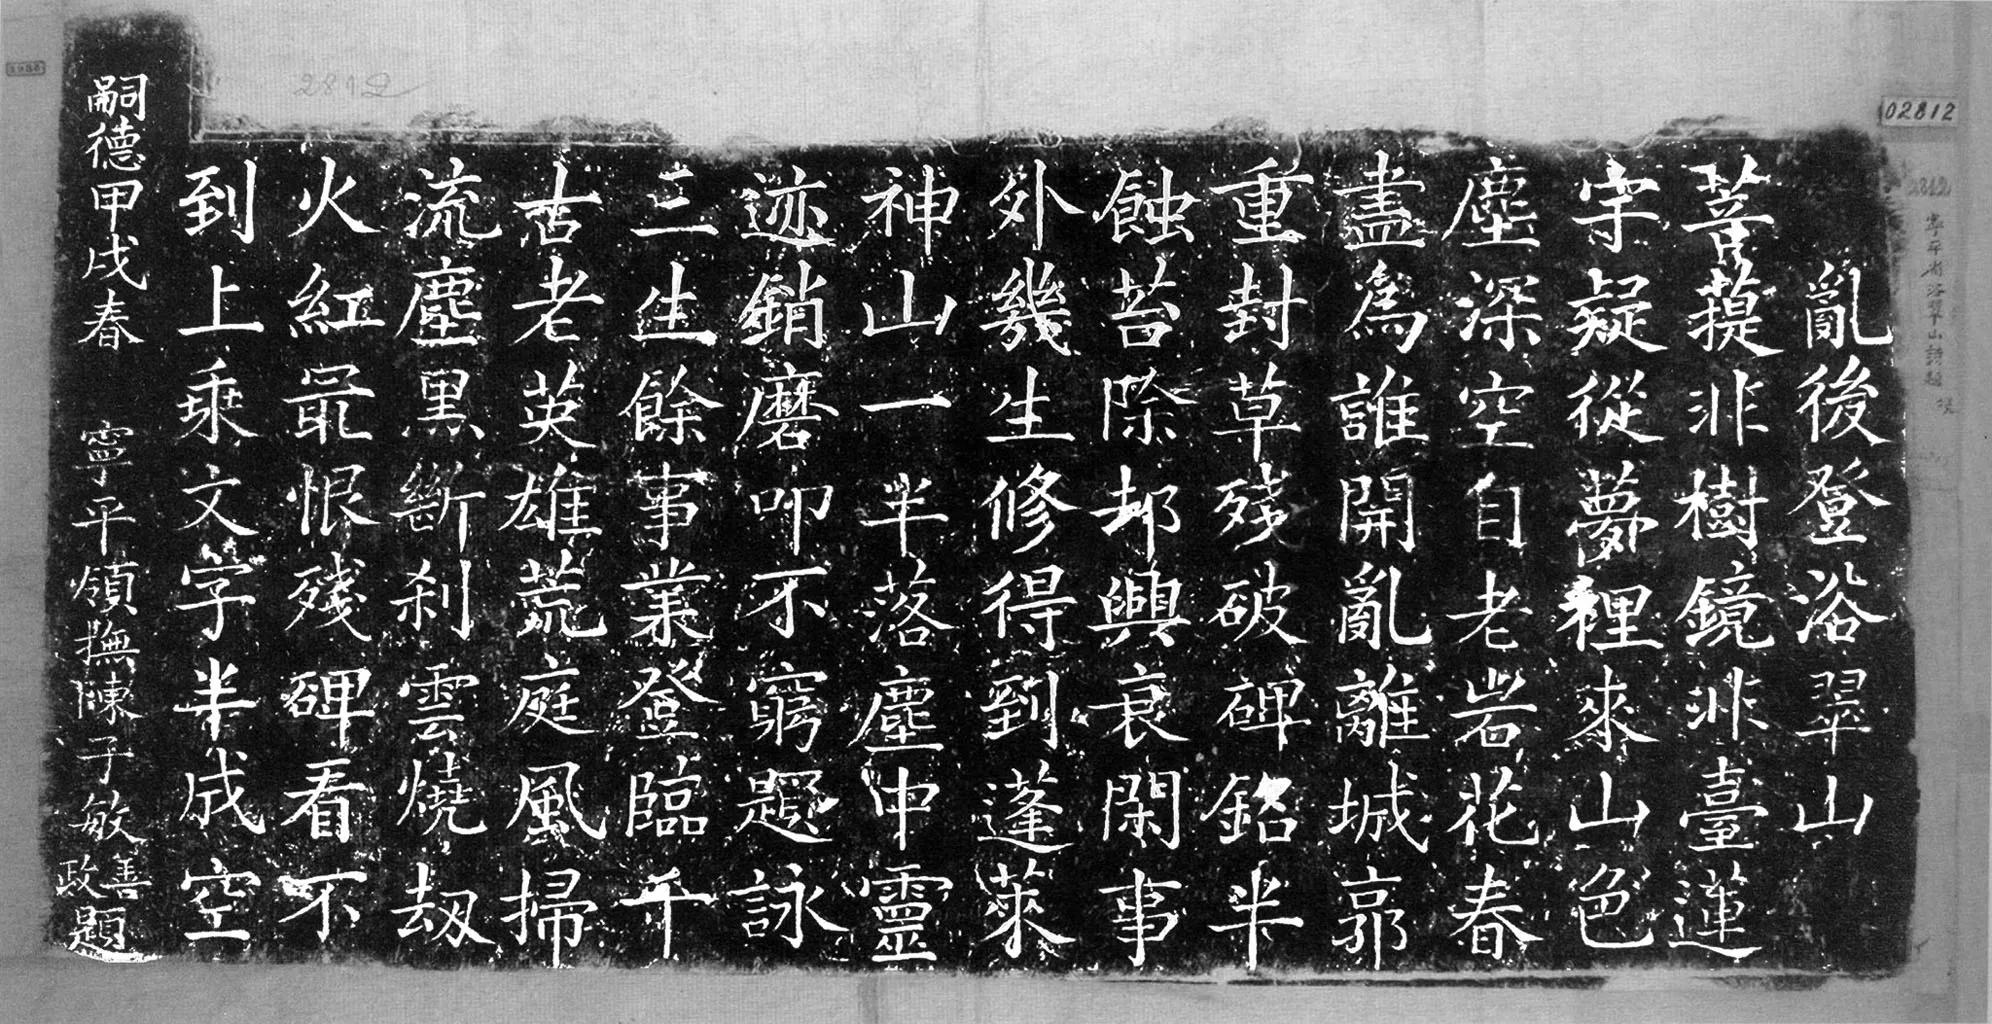 02812
2812
2812
亂後登浴翠山
菩提非樹鏡非臺蓮
宇疑從夢裡來山色
塵深空自老岩花春
盡為誰開亂離城郭
重封草殘破碑銘半
蝕苔除却興衰閑事
外幾生修得到蓬萊
神山一半落塵中靈
迹銷磨叩不窮題詠
三生餘事業登臨千
古老英雄荒庭風掃
流塵黑斷刹雲燒劫
火紅最恨殘碑看不
到上乘文字半成空
嗣德甲戌春 寧平領撫陳子敏善政題